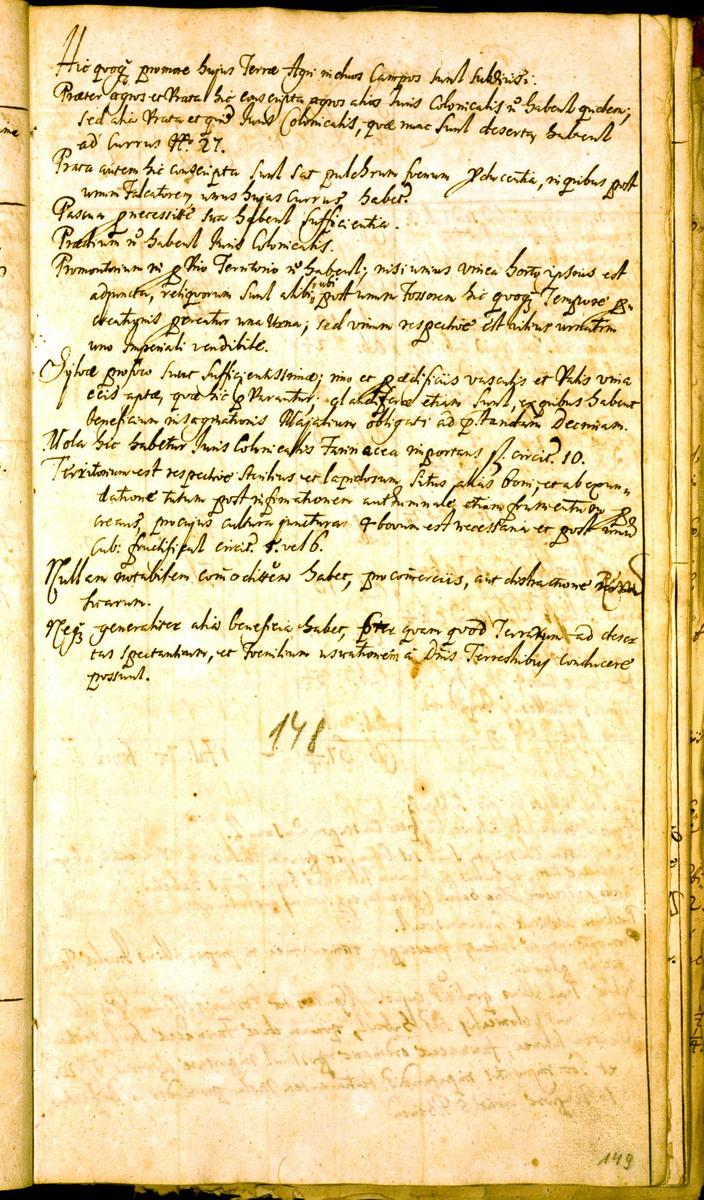 Hic quoq; promore hujus Terræ Agri in duos Campos sunt subdivisi.
Præter agros et Prata hic conscripta agros alios Juris Colonicalis n̄ habent quidem;
sed alia Prata et quid. Juris Colonicalis, quæ nunc sunt deserta, habent
ad Currus Nro. 27.
Prata autem hic conscripta sunt sat pulchrum foenum producentia, in quibus post
unum falcatorem unus hujus Currus habet.
Pascua p necessitate sua habent sufficientia.
Prædium n̄ habent Juris Colonicalis.
Promontorium in p̄prio Territorio n̄ habent; nisi unius vinea horto ipsius est
adjuncta, reliquorum sunt alibi, ubi post unum fossorem hic quoq; Tempore p-
creationis percutur una Urna; sed vinum respective est vilius
uno Imperiali vendibile.
Sylvæ pro foco sunt sufficientissimæ; imo et p ædificiis vasculis et Palis vinea
ceis aptæ, quæ hic p̄parantur; glandiferæ etiam sunt, ex quibus habent
beneficium insaginationis Majalium obligati ad p̄standam Decimam.
Mola hic habetur Juris Colonicalis Farinacea importans fl. circit. 10.
Territorium est respective sterilius et lapidosum, situs alias boni, et ab exun-
datione tutum post infirmationem autumnale etiam frumentum p-
creans, pro cujus cultura juncturas 4 bovum est necessaria et post unum
Cub: fructificat circit. 5. vel 6.
Nullam notabilem comoditatem habet, pro comerciis, aut distractione
Neq; generaliter alia beneficia habet, p̄ter quam quod Terrarum ad deser
tas spectantium, et Foenilium usuationem a Dnis Terrestribus conducere
possunt.
148
149